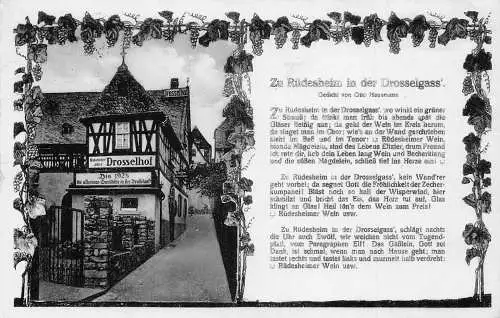 Drosselhof
Bis 1928
Zu Rüdesheim in der Drosselgass'.
Gedicht von Otto Hausmann
Zu Rüdesheim in der Drosselgass', wo winkt ein grüner
Strauß; da trinkt man früh bis abends spät die
Gläser fleißig aus; da geht der Wein im Kreis herum,
da singet man im Chor; wie's an der Wand geschrieben
steht im Baß und im Tenor: Rüdesheimer Wein,
blonde Mägdelein, sind des Lebens Elixier, drum Freund
ich rate dir, lieb dein Leben lang Wein und Becherklang
und die süßen Mägdelein, schließ tief ins Herze
Zu Rüdesheim in der Drosselgass', kein Wand'rer
geht vorbei; da segnet Gott die Fröhlichkeit der Zecher-
kumpanei! Bläst noch so hohl der Wisperwind, hier
schmilzt und bricht das Eis, das Herz tut auf. Glas
klingt an Glas! Heil
Rüdesheimer Wein usw.
Zu Rüdesheim in der Drosselgass', schlägt nachts
die Uhr auch Zwölf, wir weichen nicht vom Tugend-
pfad, vom Paragraphen Elf! Das Gäßlein, Gott sei
Dank, ist schmal, wenn man nach Hause geht; man
tastet rechts und tastet links und
Rüdesheimer Wein usw.